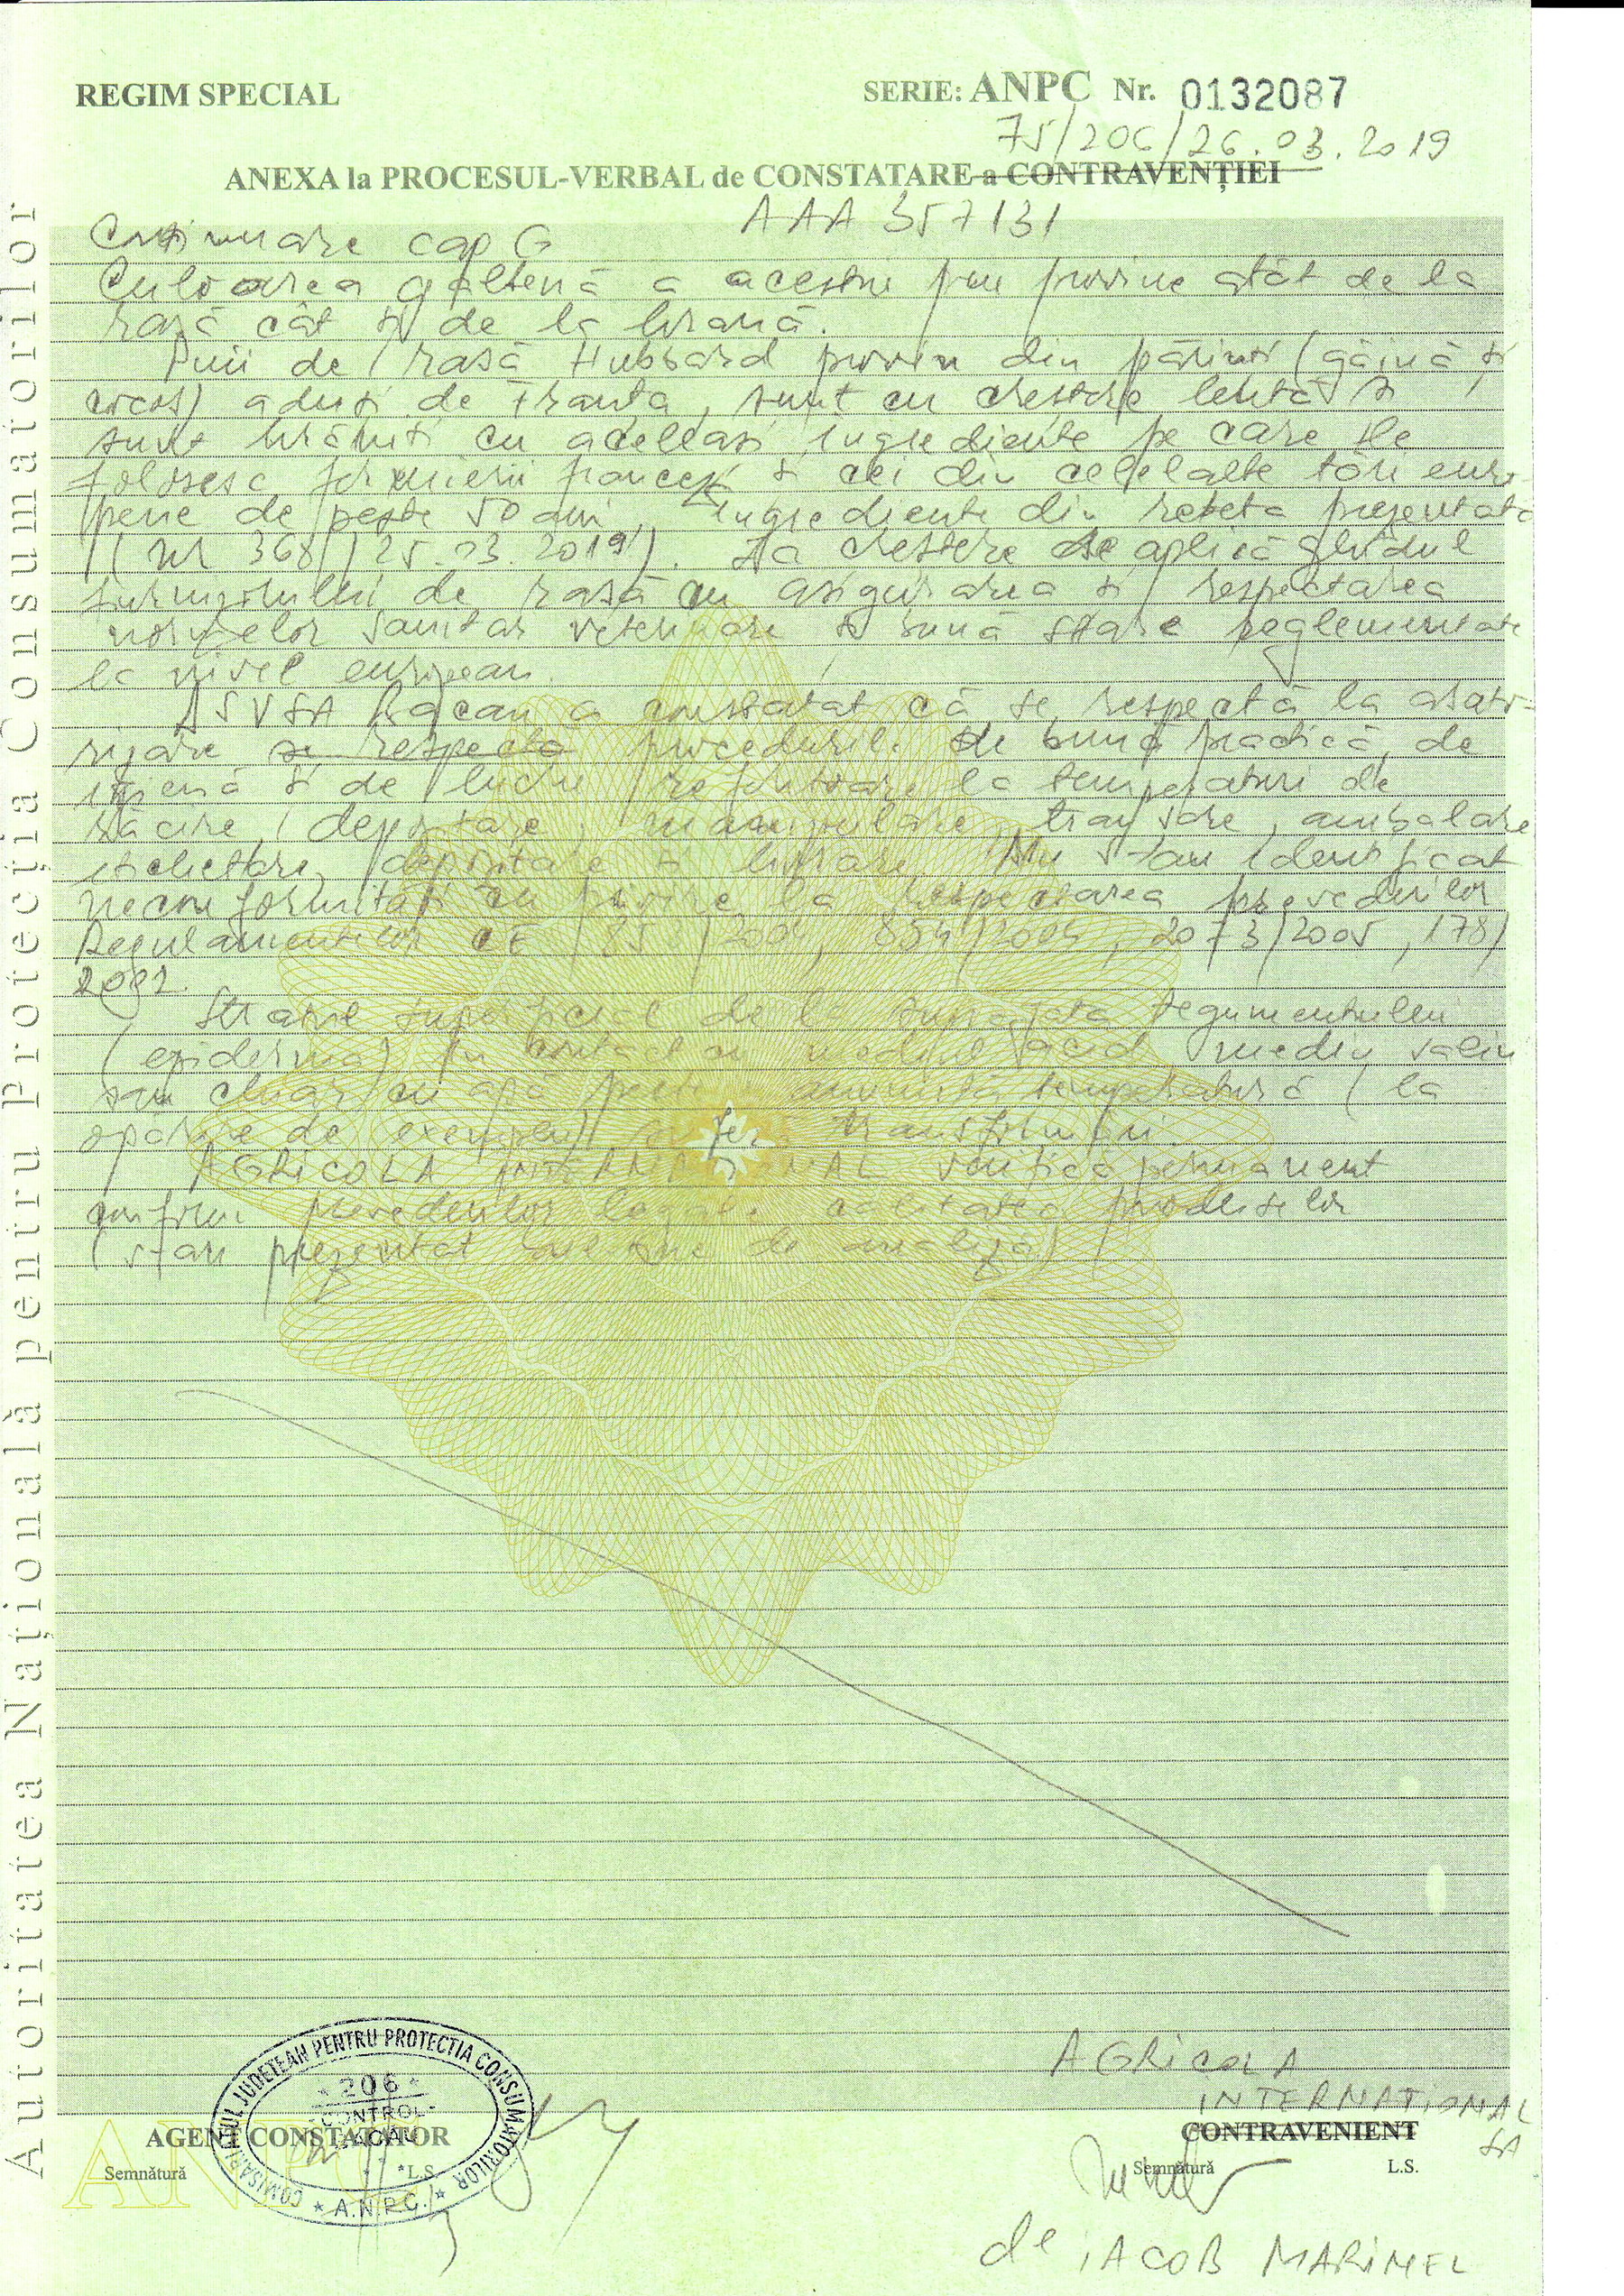 REGIM SPECIAL
SERIE: ANPC Nr. 0132087
75/206/26.03.2019
ANEXA la PROCESUL-VERBAL de CONSTATARE a CONTRAVENȚIEI
AAA 357131
Continuare cap G
Culoarea galbenă a acestui pui provine atât de la
rasă cât și de la hrană.
Puii de rasă Hubbard provin din părinți (găină și
cocoș) aduși de Franța, sunt cu creștere lentă și
sunt hrăniți cu aceleași ingrediente pe care le
folosesc fermierii francezi și cei din celelalte țări euro-
pene de peste 50 ani, ingrediente din rețeta prezentată
(nr 368/25.03.2019). La creștere se aplică ghidul
furnizorului de rasă cu asigurarea și respectarea
normelor sanitar veterinare și bună stare reglementate
la nivel european.
DSVSA Bacau a constatat că se respectă la abato-
rizare se respectă procedurile de bună practică, de
igienă și de lucru referitoare la temperaturi de
răcire, depozitare, manipulare, tranșare, ambalare
etichetare, depozitare și livrare. Nu s-au identificat
neconformități cu privire la respectarea prevederilor
Regulamentelor CE /2004, 854/2004, 2073/2005, 178/
2002.
Stratul superficial de la suprafața tegumentului
(epiderma) în contact cu mediul acid mediu salin
sau chiar cu apă peste anumită temperatură (la
opărire de exemplu) suferă transformări.
AGRICOLA INTERNATIONAL verifică permanent
conform prevederilor legale calitatea produselor
(s-au prezentat buletine de analiză)
Autoritatea Națională pentru Protecția Consumatorilor
COMISARIATUL JUDEȚEAN PENTRU PROTECTIA CONSUMATORILOR
* 206 *
-CONTROL-
BACAU
* A.N.P.C. *
ANPC
AGENT CONSTATATOR
Semnătură L.S.
AGRICOLA
INTERNATIONAL
SA
CONTRAVENIENT
Semnătură L.S.
de IACOB MARINEL